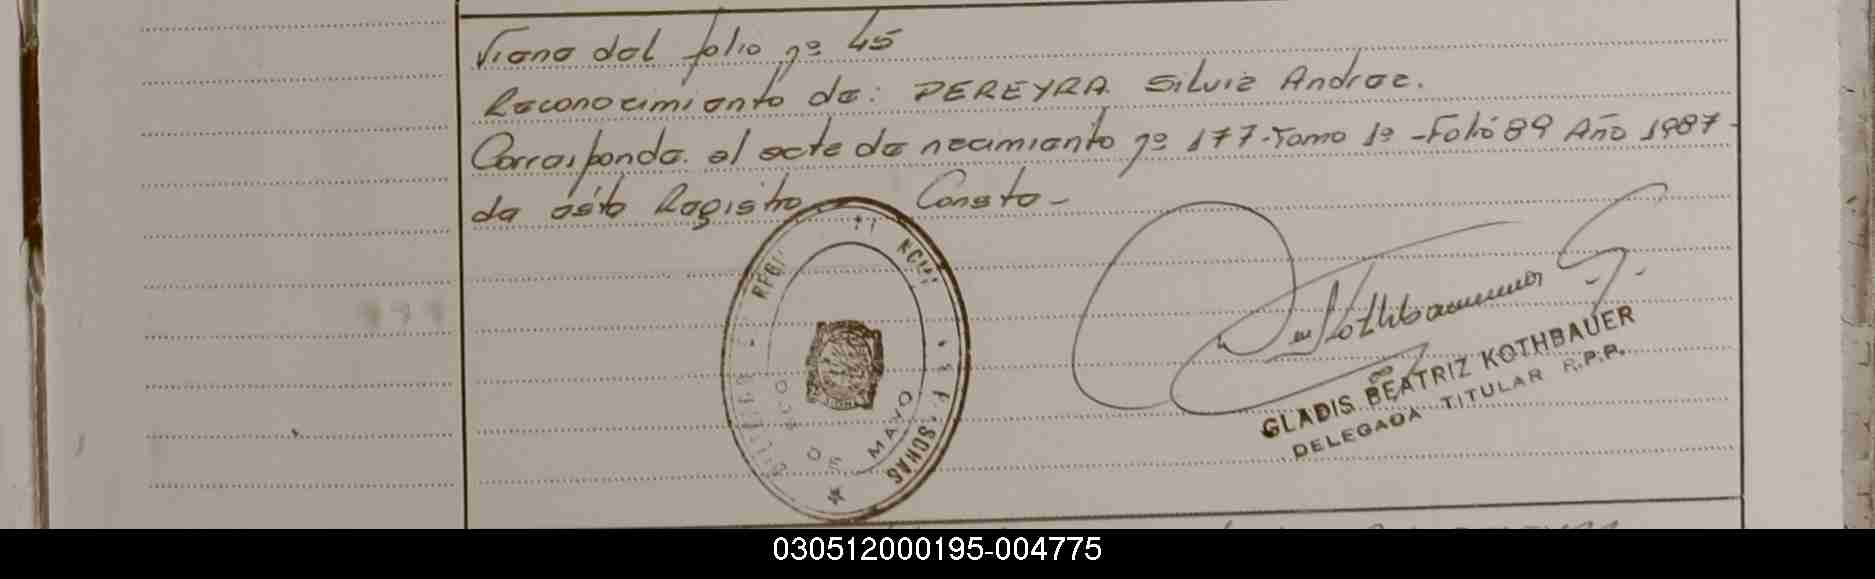 Viene del folio nº 45
Reconocimiento de: PEREYRA Silvia Andrea.
Corresponde al acta de nacimiento nº 177-Tomo 1º -Folio 89 Año 1987-
de ésto Registro Consta-
PERSONAS
DE MAYO
Kothbauer
GLADIS BEATRIZ KOTHBAUER
DELEGADA TITULAR R.P.P.
030512000195-004775